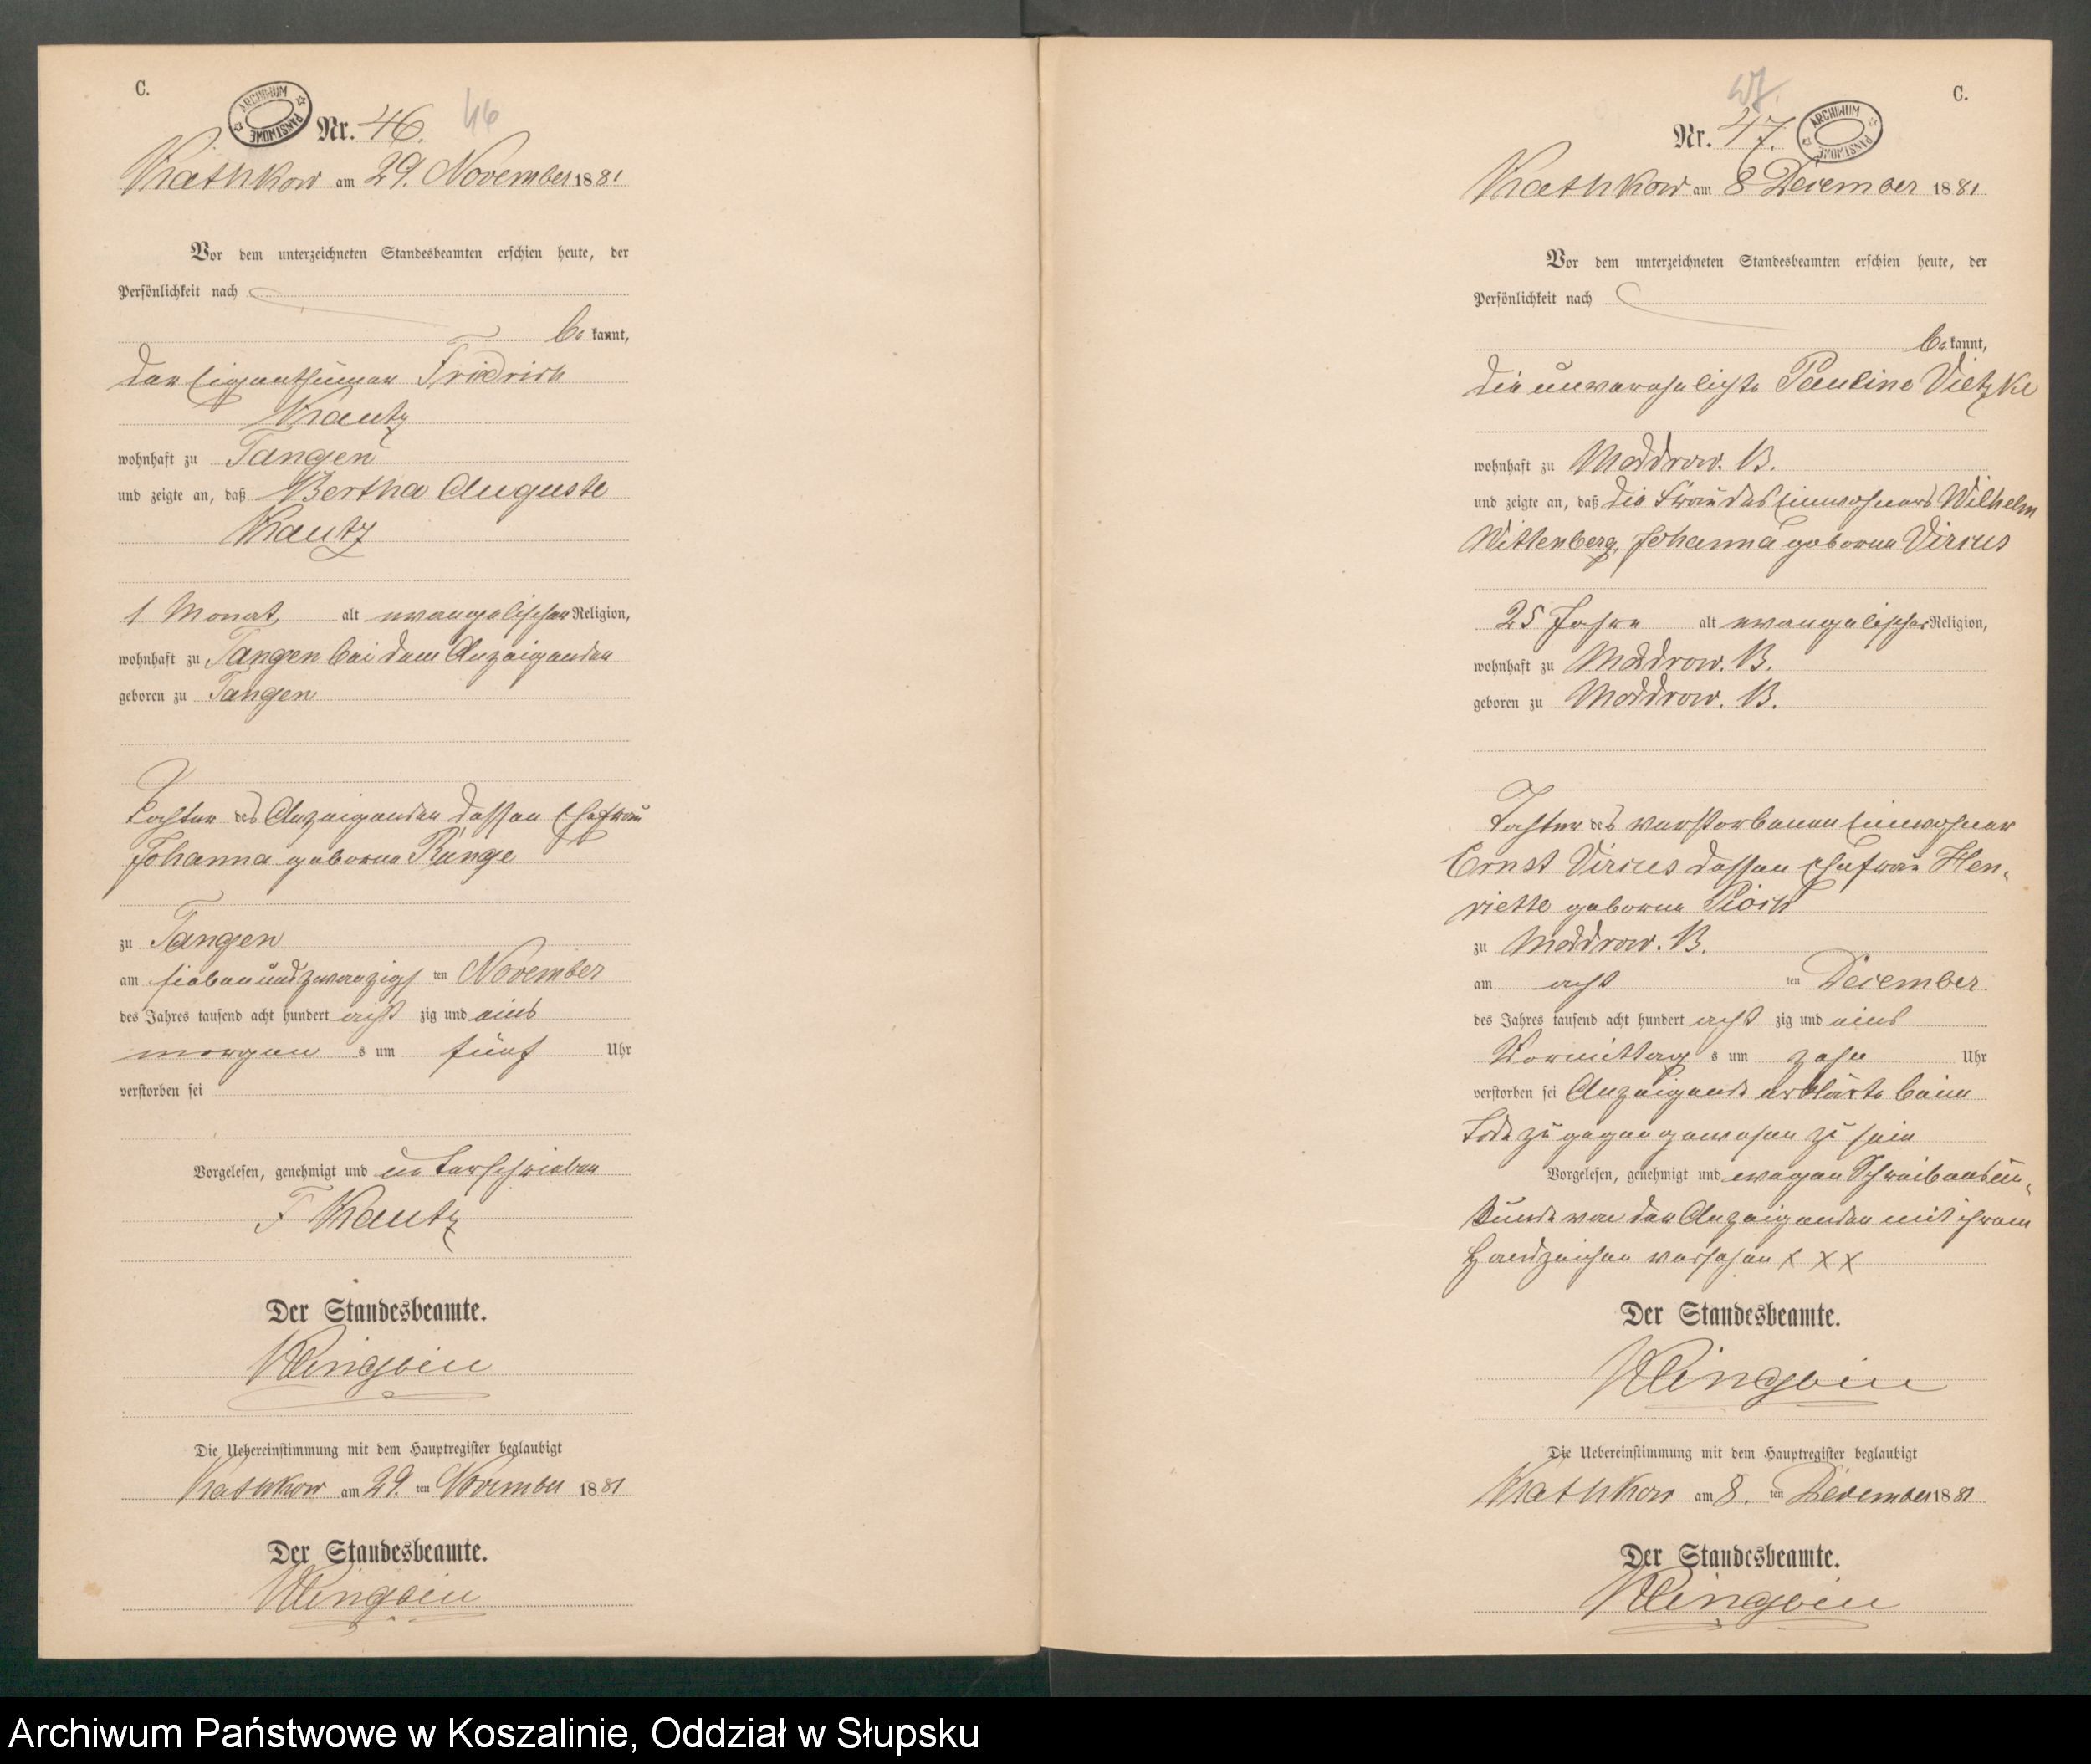 C.
ARCHIWUM PAŃSTWOWE
Nr. 46. 46
Krathkow am 29. November 1881
Vor dem unterzeichneten Standesbeamten erschien heute, der
Persönlichkeit nach
be kannt,
der Eigenthümer Friedrich
Krautz
wohnhaft zu Tangen
und zeigte an, daß Bertha Auguste
Krautz
1 Monat, alt evangelischer Religion,
wohnhaft zu Tangen bei dem Anzeigenden
geboren zu Tangen
Tochter des Anzeigenden dessen Ehefrau
Johanna geborne Runge
zu Tangen
am siebenundzwanzigs ten November
des Jahres tausend acht hundert acht zig und eins
morgen s um fünf Uhr
verstorben sei
Vorgelesen, genehmigt und unterschrieben
F Krautz
Der Standesbeamte.
Die Uebereinstimmung mit dem Hauptregister beglaubigt
Krathkow am 29. ten November 1881
Der Standesbeamte.
C.
47.
Nr. 47.
ARCHIWUM PAŃSTWOWE
Krathkow am 8 December 1881
Vor dem unterzeichneten Standesbeamten erschien heute, der
Persönlichkeit nach
be kannt,
die unverehelichte Pauline Vietzke
wohnhaft zu Moddrow. B.
und zeigte an, daß die Frau des Einwohners Wilhelm
Wittenberg, Johanna geborne Vircus
25 Jahre alt evangelischer Religion,
wohnhaft zu Moddrow. B.
geboren zu Moddrow. B.
Tochter des verstorbenen Einwohner
Ernst Vircus dessen Ehefrau Hen-
riette geborne
zu Moddrow. B.
am acht ten December
des Jahres tausend acht hundert acht zig und eins
Vormittag s um zehn Uhr
verstorben sei Anzeigende erklärte beim
Tode zugegen gewesen zu sein
Vorgelesen, genehmigt und wegen Schreibensun-
kunde von der Anzeigenden mit ihrem
Handzeichen versehen x x x
Der Standesbeamte.
Die Uebereinstimmung mit dem Hauptregister beglaubigt
Krathkow am 8. ten December 1881
Der Standesbeamte.
Archiwum Państwowe w Koszalinie, Oddział w Słupsku